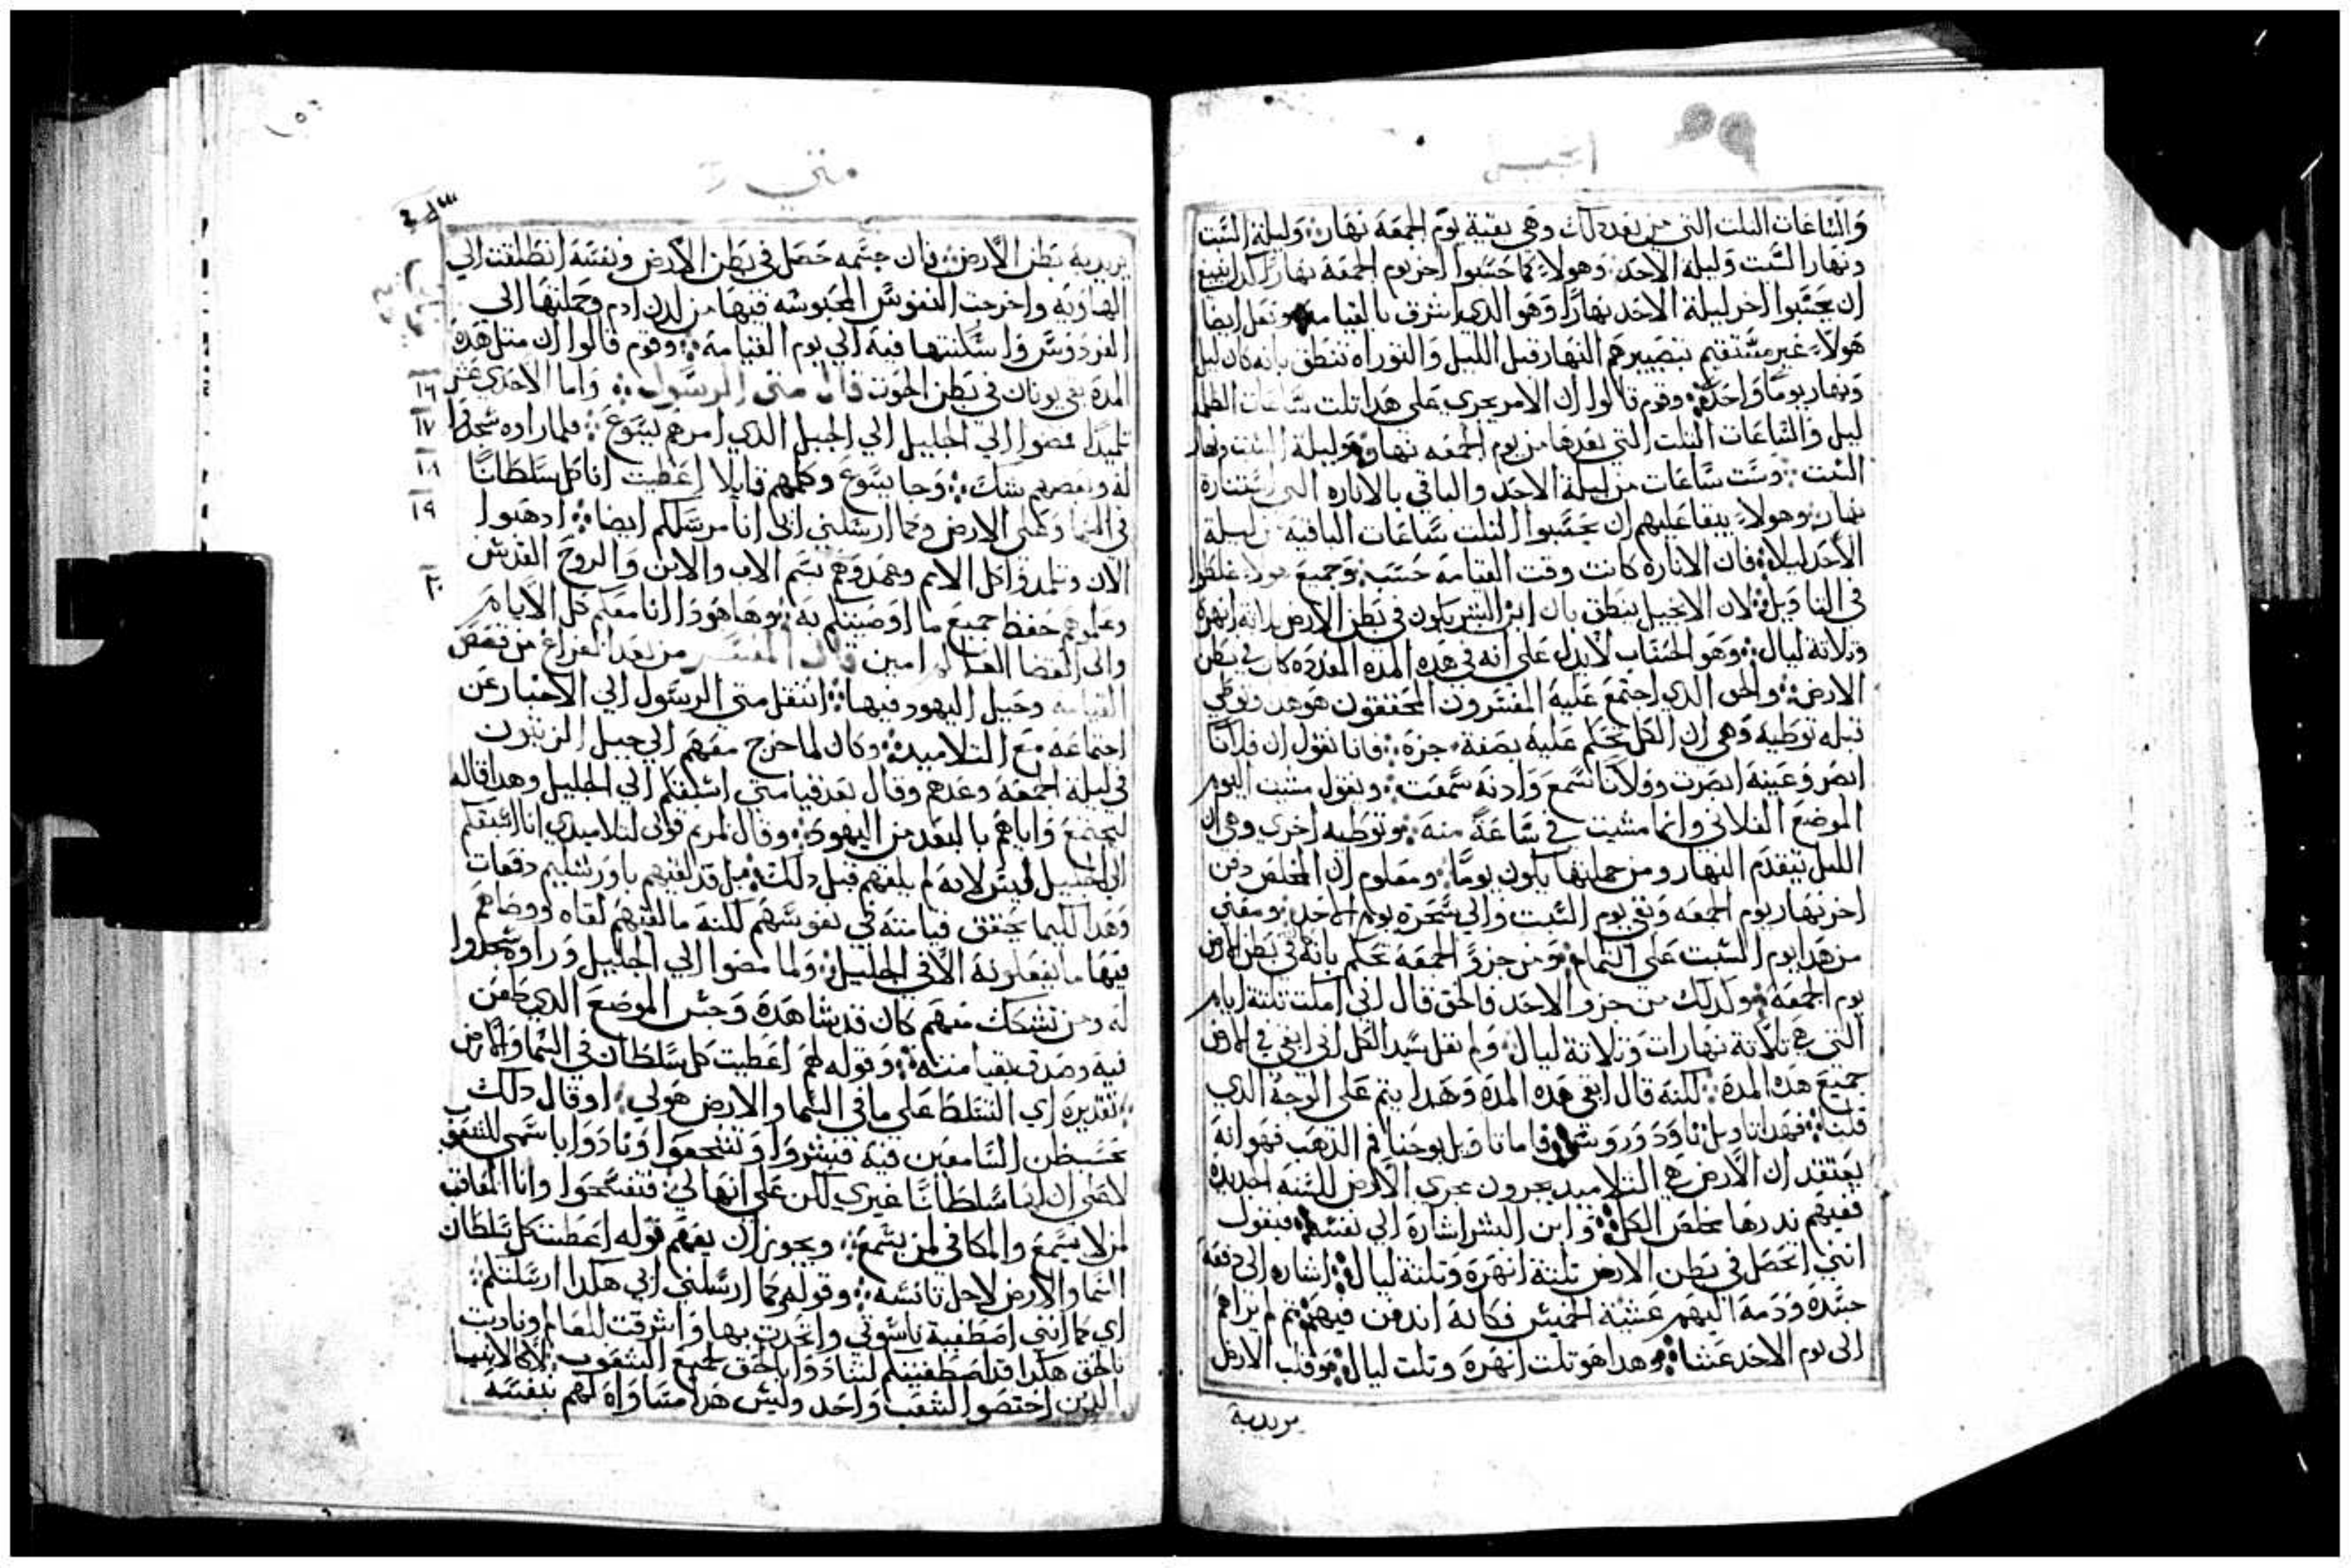 انجيل
والساعات التلت التي من بعد دلك وهي بقية يوم الجمعة نهار وليلة السبت
ونهار السبت وليلة الاحد وهولاء كما حسبوا اخر يوم الجمعة نهارا كدا ينبغي
ان يحسبوا اخر ليلة الاحد نهارا وهو الدي اشرق بالقيامه ونقل ايضا
هولاء غير مستقيم بتصييرهم النهار قبل الليل والتوراه تنطق بانه كان ليل
ونهار يوما واحدا وقوم قالوا ان الامر يجري على هدا تلت ساعات الظلمه
ليل والساعات التلت التي بعدها من يوم الجمعه نهار وليلة السبت ونهار
السبت وست ساعات من ليلة الاحد والباقي بالاناره التي استنارة
نهار وهولاء يبقا عليهم ان يحسبوا التلت ساعات الباقيه من ليلة
الاحد ليلا فان الاناره كانت وقت القيامه حسب وجميع هولاء غلطوا
في التاويل لان الانجيل ينطق بان ابن البشر يكون في بطن الارض تلاتة انهرة
وتلاتة ليال وهو الحساب لا يدل على انه في هده المده المعدده كان في بطن
الارض والحق الدي اجتمع عليه المفسرون المحققون هو هدا ونوطي
قبله توطيه وهي ان الكل يحكم عليه بصفة جزة فانا نقول ان فلانا
ابصر وعينه ابصرت وفلانا سمع وادنه سمعت ونقول مشيت اليوم
الموضع الفلاني وانما مشيت في ساعة منه وتوطيه اخرى وهي ان
الليل يتقدم النهار ومن جملتها يكون يوما ومعلوم ان المخلص دفن
اخر نهار يوم الجمعه وبقي يوم السبت والى سحرة يوم الاحد ومضي
من هدا يوم السبت على التمام ومن جزو الجمعة نحكم بانه في بطن الارض
يوم الجمعة وكدلك من جزو الاحد فالحق قال اني امكت تلتة ايام
التي هي تلاتة نهارات وتلاتة ليال ولم يقل سيد الكل اني ابقى في الارض
جميع هده المدة لكنه قال ابقى هده المدة وهدا يتم على الوجه الدي
قلنا فهدا تاويل تاودوروس فاما تاويل يوحنا فم الدهب فهو انه
يعتقد ان الارض هي التلاميد يجرون مجرى الارض للسنه الجديدة
ففيهم بدرها مخلص الكل وابن البشر اشارة الى نفسه فيقول
انني احصل في بطن الارض تلتة انهرة وتلتة ليال اشاره الى دفعه
جسده ودمه اليهم عشية الخميس فكانه اندفن فيهم تم لم يراهم
الى يوم الاحد عشا وهدا هو تلت انهرة وتلت ليال وقلب الارض
يريد به
متي
يريد به بطن الارض فان جسمه حصل في بطن الارض ونفسه انطلقت الى
الهاويه واخرجت النفوس المحبوسه فيها من لدن ادم وحملتها الى
الفردوس واسكنتها فيه الى يوم القيامة وقوم قالوا ان متل هده
المدة بقي يونان في بطن الحوت قال متى الرسول واما الاحدى عشر ١٦
تلميدا فمضوا الى الجليل الى الجبل الدي امرهم يسوع فلما راوه سجدوا ١٧
له وبعضهم شك وجا يسوع وكلمهم قايلا اعطيت انا كل سلطانا ١٨
في السما وعلى الارض وكما ارسلني ابي انا مرسلكم ايضا ادهبوا ١٩
الان وتلمدوا كل الامم وعمدوهم بسم الاب والابن والروح القدس
وعلموهم حفظ جميع ما اوصيتكم به وها هودا انا معكم كل الايام ٢٠
والى انقضا العالم امين قال المفسر من بعد الفراغ من قصص
القيامه وحيل اليهود فيها انتقل متى الرسول الى الاخبار عن
اجتماعه مع التلاميد وكان لما خرج معهم الى جبل الزيتون
في ليلة الجمعة وعدهم وقال بعد قيامتي اسبقكم الى الجليل وهدا قاله
ليجتمع واياهم بالبعد من اليهود وقال لمريم قولي لتلاميدي انا اسبقكم
الى الجليل ليس لانه لم يلقهم قبل دلك بل قد لقيهم باورشليم دفعات
وهدا كيما يحقق قيامته في نفوسهم لكنه ما لقيهم لقاه اوصاهم
فيها ما يفعلونه الا في الجليل ولما مضوا الى الجليل وراوه سجدوا
له ومن تشكك منهم كان قد شاهده وجس الموضع الدي طعن
فيه وصدق بقيامته وقوله لهم اعطيت كل سلطان في السما والارض
تقديره اي التسلط على ما في السما والارض هو لي او قال دلك
بحسب ظن السامعين فيه فبشروا وتشجعوا ونادوا باسمي للشعوب
لا على ان سلطانا غيري لكن على انها لي فتفسحوا وانا المعاقب
لمن لا يسمع والمكافي لمن يسمع ويجوز ان يفهم قوله اعطيت كل سلطان
السما والارض لاجل تانسه وقوله كما ارسلني ابي هكدا ارسلتكم
اي كما انني اصطفية ناسوتي واتحدت بها واشرقت للعالم وناديت
بالحق هكدا قد اصطفيتكم لتنادوا بالحق لجميع الشعوب لا كالانبيا
الدين اختصوا لشعب واحد وليس هدا مساواه لهم بنفسه